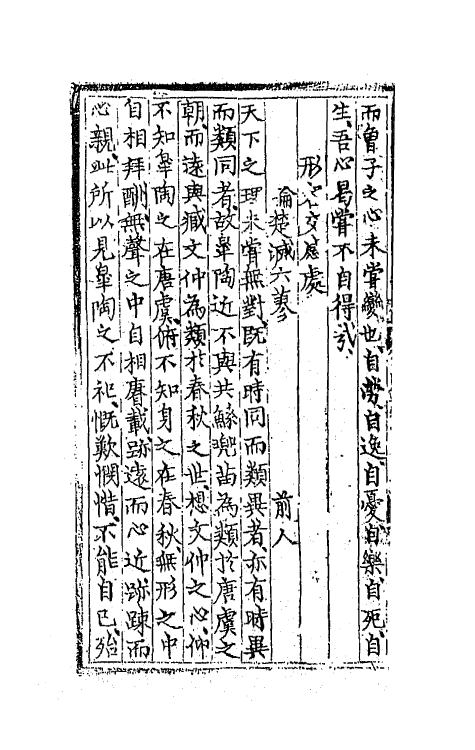 而曾子之心未甞變也自勞自逸自憂自樂自死自
生吾心曷甞不自得哉
形公交感處
論楚滅六蓼　前人
天下之理未甞無對既有時同而類異者亦有時異
而類同者故皋陶近不與共鯀兜苗為類於唐虞之
朝而遠與臧文仲為類於春秋之世想文仲之心仰
不知皋陶之在唐虞俯不知身之在春秋無形之中
自相拜酬無聲之中自相賡載跡遠而心近跡踈而
心親此所以見皋陶之不祀慨歎憫惜不能自已殆